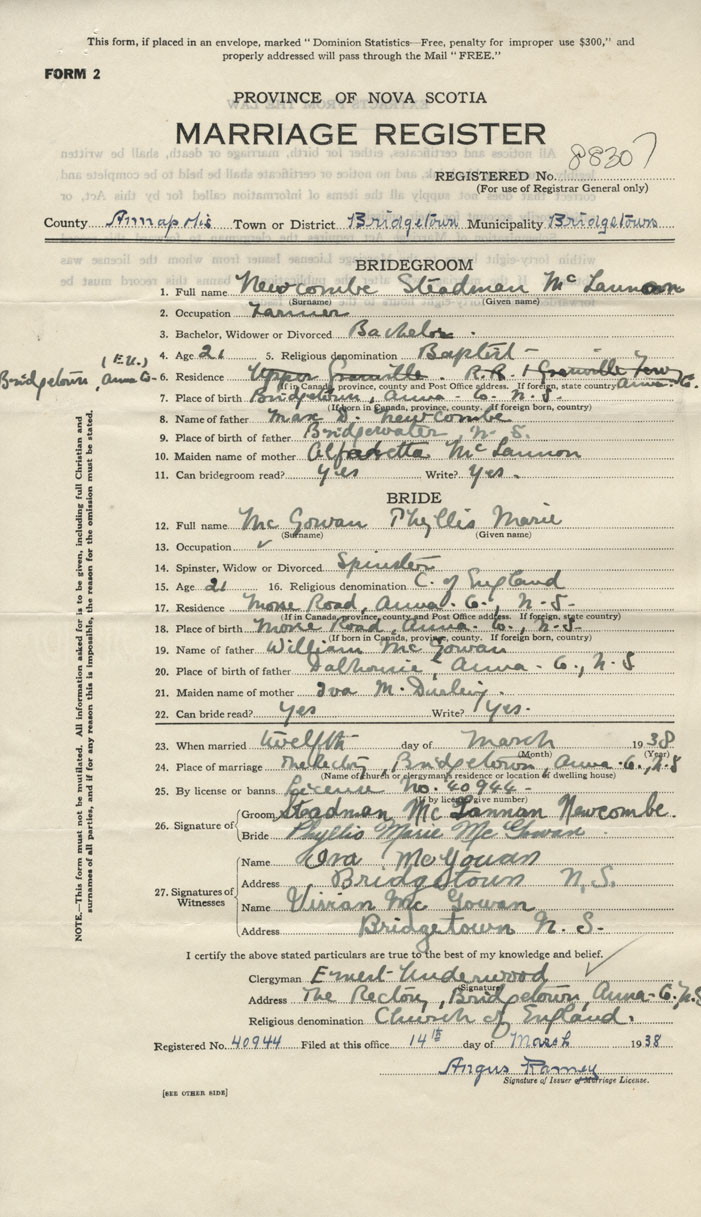 This form, if placed in an envelope, marked "Dominion Statistics—Free, penalty for improper use $300," and
properly addressed will pass through the Mail "FREE."
FORM 2
PROVINCE OF NOVA SCOTIA
MARRIAGE REGISTER
REGISTERED No. 88307
(For use of Registrar General only)
County Annapolis Town or District Bridgetown Municipality Bridgetown
BRIDEGROOM
1. Full name Newcombe Steadman McLannon
(Surname) (Given name)
2. Occupation Farmer
3. Bachelor, Widower or Divorced Bachelor.
4. Age 26 5. Religious denomination Baptist
(E.U.)
Bridgetown, Anna Co. 6. Residence Upper Granville. R.R. 1 Granville Ferry Anna. Co.
(If in Canada, province, county and Post Office address. If foreign, state country)
7. Place of birth Bridgetown, Anna. Co. N.S.
(If born in Canada, province, county. If foreign born, country)
8. Name of father Max D. Newcombe
9. Place of birth of father Bridgewater, N.S.
10. Maiden name of mother Alfaretta McLannon
11. Can bridegroom read? Yes Write? Yes.
BRIDE
12. Full name McGowan Phyllis Marie
(Surname) (Given name)
13. Occupation ✓
14. Spinster, Widow or Divorced Spinster
15. Age 21 16. Religious denomination C. of England
17. Residence Morse Road, Anna. Co., N.S.
(If in Canada, province, county and Post Office address. If foreign, state country)
18. Place of birth Morse Road, Anna. Co., N.S.
(If born in Canada, province, county. If foreign born, country)
19. Name of father William McGowan
20. Place of birth of father Dalhousie, Anna. Co., N.S
21. Maiden name of mother Iva M. Durling.
22. Can bride read? Yes Write? Yes.
23. When married twelfth day of March 1938
(Month) (Year)
24. Place of marriage The Rectory, Bridgetown, Anna. Co., N.S
(Name of church or clergyman's residence or location of dwelling house)
25. By license or banns License No. 40944.
(If by license, give number)
26. Signature of Groom Steadman McLannan Newcombe.
Bride Phyllis Marie McGowan
27. Signatures of Witnesses
Name Iva McGowan
Address Bridgetown N.S.
Name Vivian McGowan
Address Bridgetown N.S.
I certify the above stated particulars are true to the best of my knowledge and belief.
Clergyman Ernest Underwood
Signature
Address The Rectory, Bridgetown, Anna. Co. N.S
Religious denomination Church of England.
Registered No. 40944 Filed at this office 14th day of March 1938
Angus Ramey
Signature of Issuer of Marriage License.
[SEE OTHER SIDE]
NOTE.—This form must not be mutilated. All information asked for is to be given, including full Christian and
surnames of all parties, and if for any reason this is impossible, the reason for the omission must be stated.